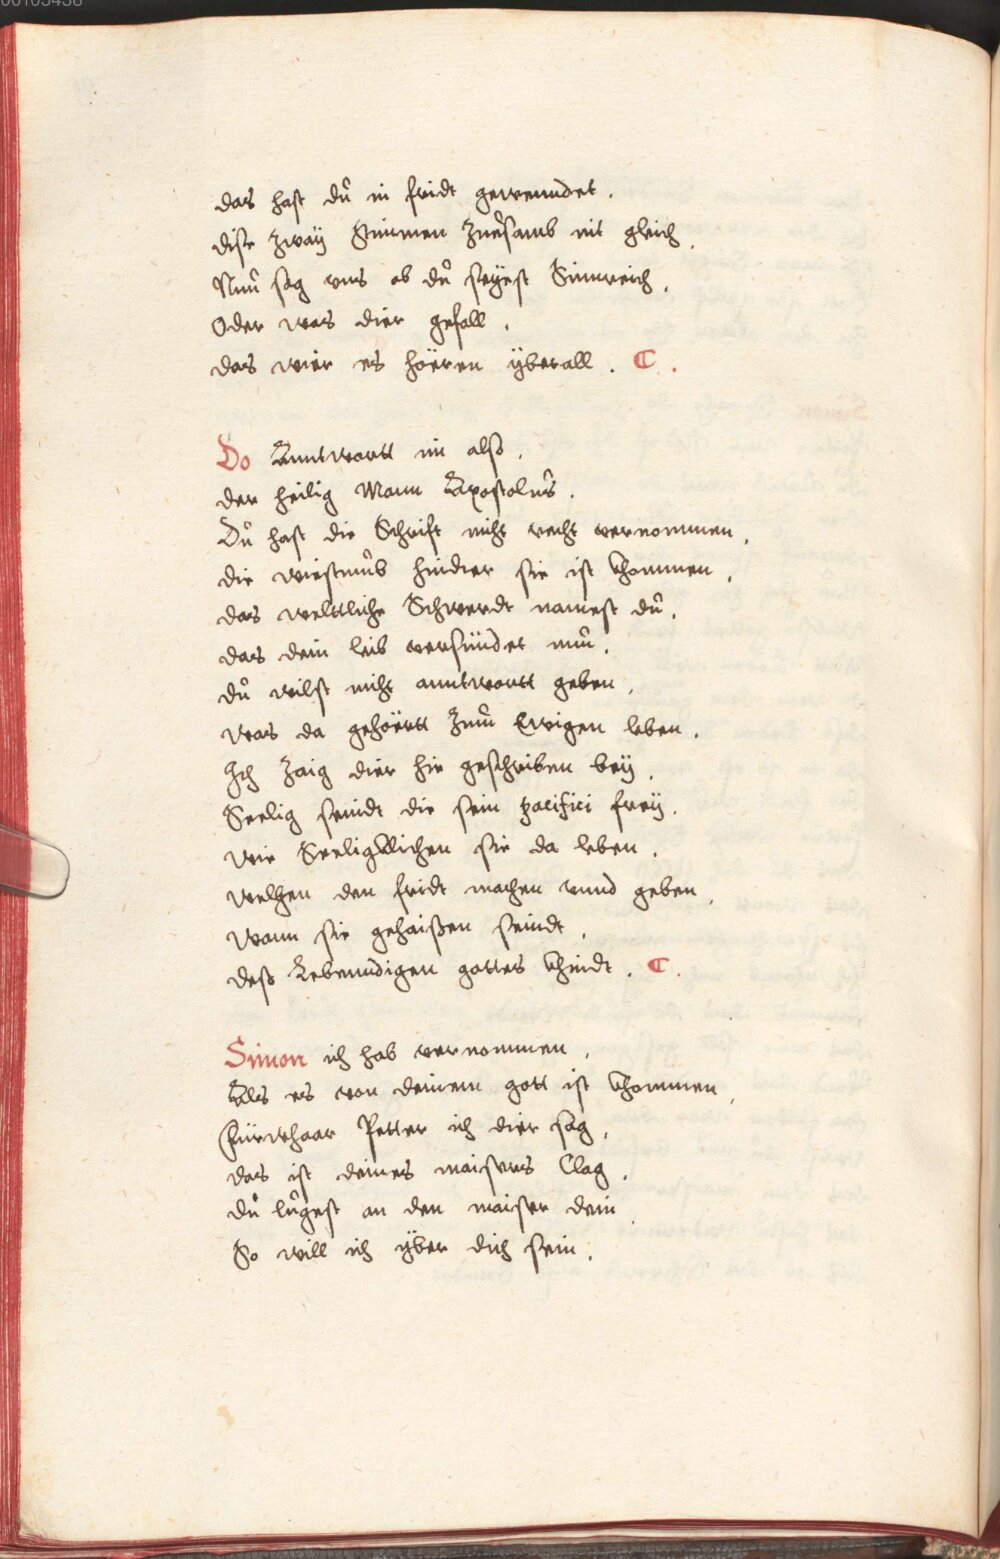 das hast dů in fridt gewenndet.
dise zwaÿ Stimmen zuesamb nit gleich,
Nun sag vns ob dů seÿest Sinnreich,
Oder was dier gefall,
das wier es hören ÿberall. C.
Do Anntwortt im alß,
der heilig Mann Apostolus,
Dů hast die Schrift nicht recht vernommen,
die hindier sie ist khommen,
das welttliche Schwerdt namest dů,
das dein leib versündet nun,
dů wilst nicht anntwortt geben,
was da gehörtt zum Ewigen leben,
Ich zaig dier hie geschriben beÿ,
Seelig seindt die sein pacifici freÿ,
wie Seeligklichen sie da leben,
welchen den fridt machen vnnd geben,
wann sie gehaißen seindt,
deß Lebenndigen gottes khindt. C.
Simon ich hab vernommen,
Als es von deinem gott ist khommen,
Fürwhaar Petter ich dier sag,
das ist deines maisters Clag,
dů lůgest an den maister dein,
So will ich ÿber dich sein.